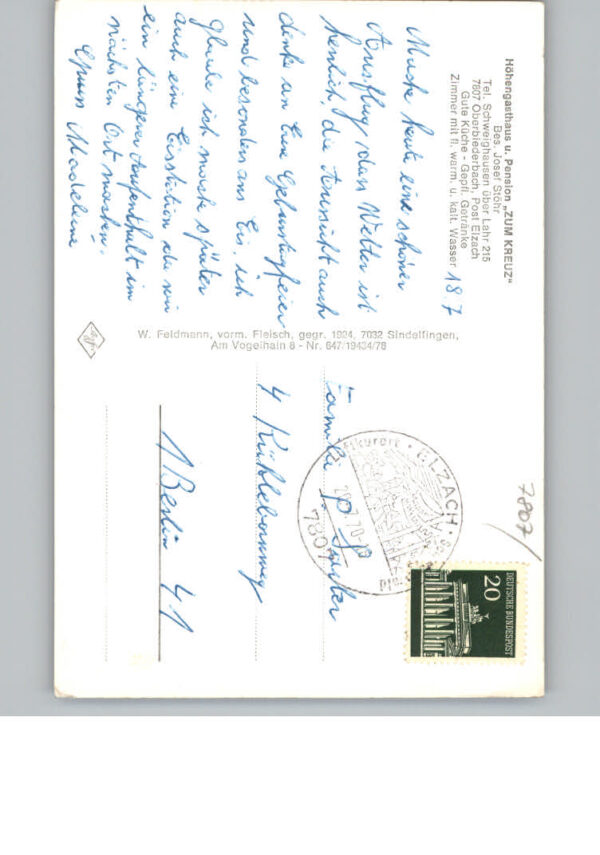 Höhengasthaus u. Pension „ZUM KREUZ"
Bes. Josef Stöhr
Tel. Schweighausen über Lahr 215
7807 Oberbiederbach, Post Elzach
Gute Küche - Gepfl. Getränke
Zimmer mit fl. warm. u. kalt. Wasser
18.7
Mache heute eine schöner
Ausflug, das Wetter ist
herrlich, die Aussicht auch
denke an Eure Geburtstagfeier
und besonders ans Eis, ich
glaube ich mache später
auch eine Eisstation da wir
ein längeren Aufenthalt im
nächsten Ort machen.
Madeleine
W. Feldmann, vorm. Fleisch, gegr. 1924, 7032 Sindelfingen,
Am Vogelhain 8 - Nr. 647/19434/76
7807
ELZACH
7807
DEUTSCHE BUNDESPOST
20
Familie P.
4
1 Berlin 41